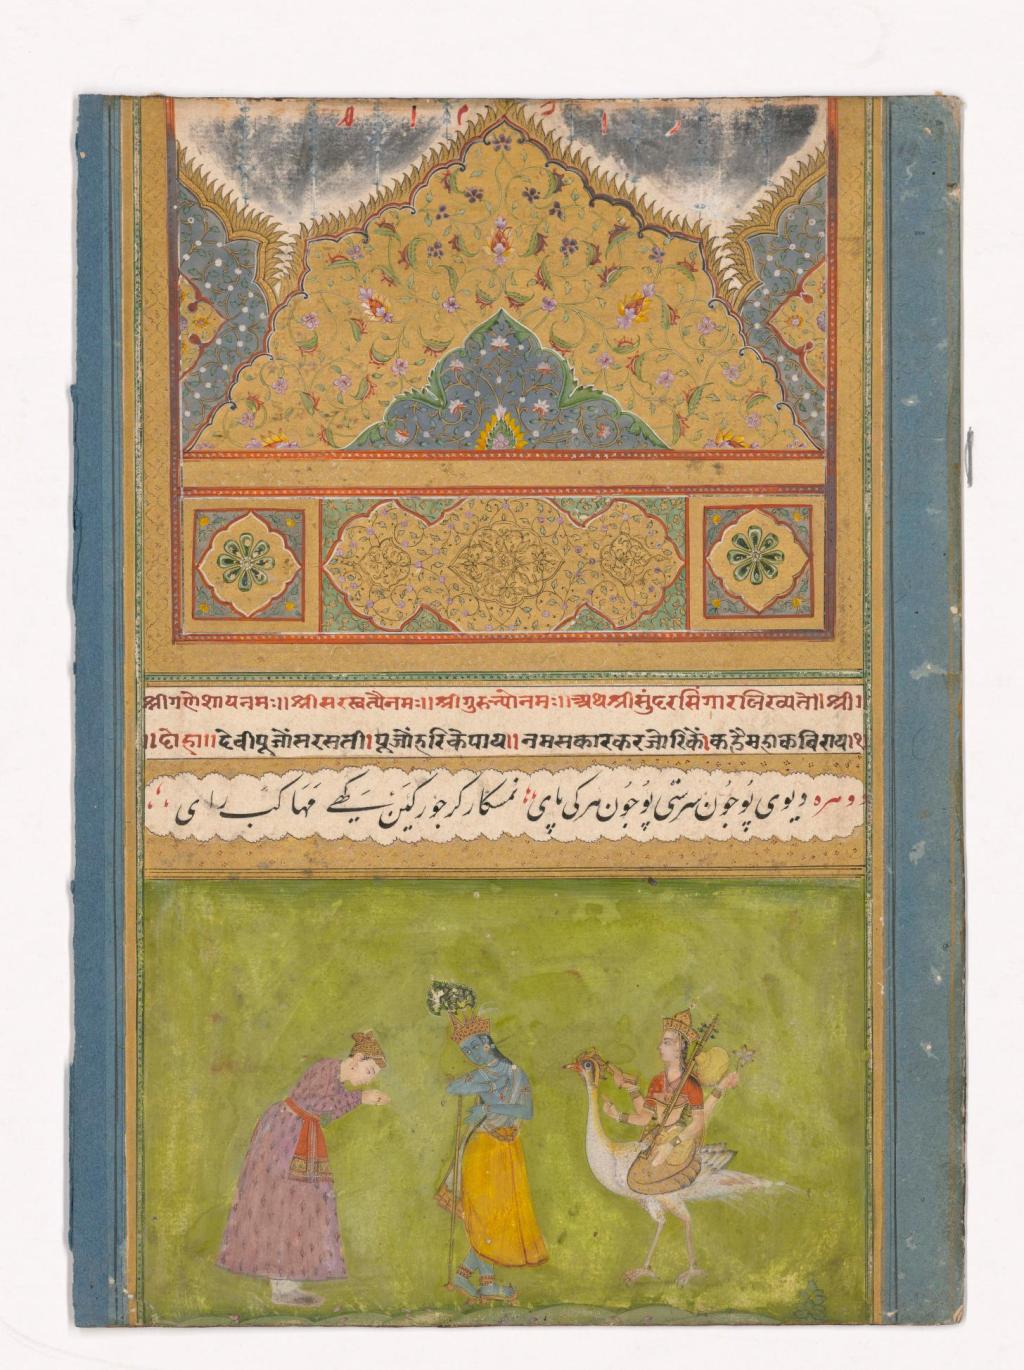 श्रीगणेशायनमः॥श्रीसरस्वत्यैनमः॥श्रीगुरुभ्योनमः॥अथश्रीसुंदरसिंगारलिख्यते॥श्री॥
॥दोहा॥देवीपूजौंसरसती।पूजौंहरिकेपाय॥नमसकारकरजोरिकें।कहैमहाकविराय॥१
دوہرہ دیوی پُوجُون سرستی پُوجُون ہرکی پای نمسکار کر جورکین کہے مَہَا کب رای